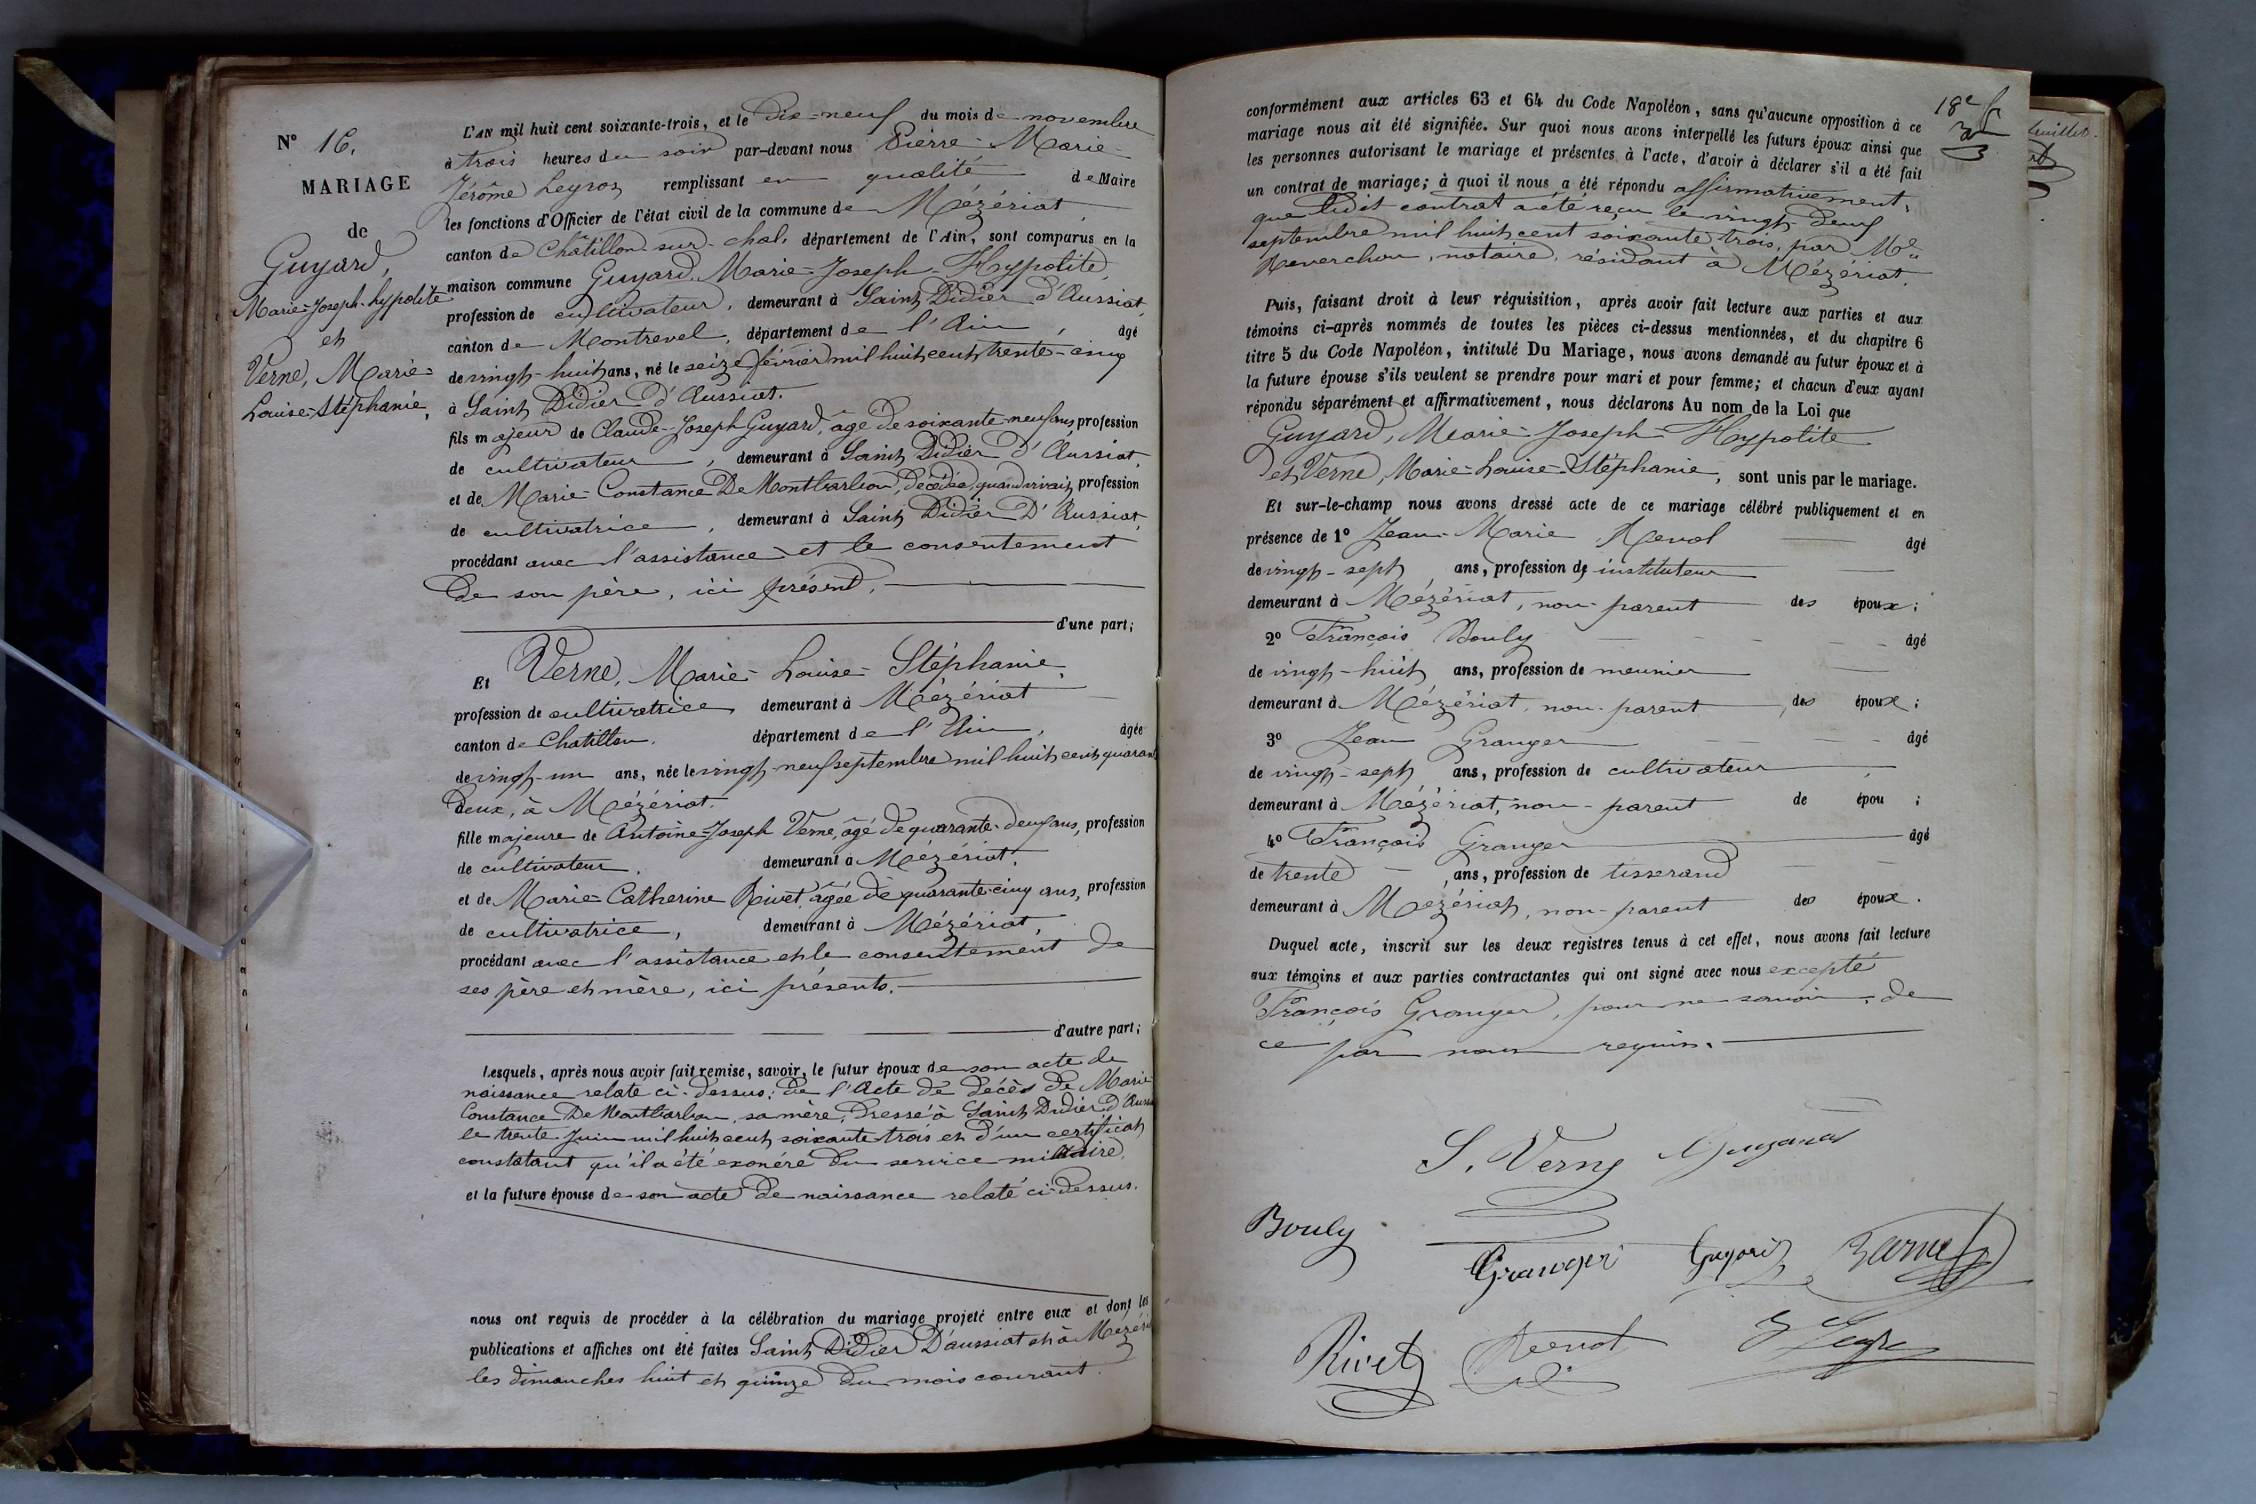 N° 16.
MARIAGE
de
Guyard,
Marie-Joseph-hypolite
et
Verne, Marie-
Louise-Stéphanie,
L'AN mil huit cent soixante-trois, et le dix-neuf du mois de novembre
à trois heures du soir par-devant nous Pierre-Marie-
Jérôme Leyros, remplissant en qualité de Maire
les fonctions d'Officier de l'état civil de la commune de Mézériat,
canton de Châtillon-sur-chal. département de l'Ain, sont comparus en la
maison commune Guyard, Marie-Joseph-Hypolite,
profession de cultivateur, demeurant à Saint Didier d'Aussiat,
canton de Montrevel, département de l'Ain, âgé
de vingt-huit ans, né le seize février mil huit cent trente-cinq
à Saint Didier d'Aussiat.
fils majeur de Claude-Joseph Guyard, âgé de soixante-neuf ans, profession
de cultivateur, demeurant à Saint Didier d'Aussiat,
et de Marie-Constance De Montbarbon, décédée, quand vivait, profession
de cultivatrice, demeurant à Saint Didier D'Aussiat,
procédant avec l'assistance et le consentement
de son père, ici présent.
d'une part;
Et Verne, Marie-Louise-Stéphanie,
profession de cultivatrice demeurant à Mézériat
canton de Chatillon. département de l'Ain, âgée
de vingt-un ans, née le vingt-neuf septembre mil huit cent quarante
deux, à Mézériat.
fille majeure de Antoine-Joseph Verne, âgé de quarante-deux ans, profession
de cultivateur. demeurant à Mézériat.
et de Marie-Catherine Rivet, âgée de quarante-cinq ans, profession
de cultivatrice, demeurant à Mézériat,
procédant avec l'assistance et le consentement de
ses père et mère, ici présents.
d'autre part;
Lesquels, après nous avoir fait remise, savoir, le futur époux de son acte de
naissance relaté ci-dessus; de l'Acte de décès de Marie
Constance De Montbarbon, sa mère, dressé à Saint Didier d'Aussiat
le trente Juin mil huit cent soixante-trois et d'un certificat
constatant qu'il a été exonéré du service militaire.
et la future épouse de son acte de naissance relaté ci-dessus.
nous ont requis de procéder à la célébration du mariage projeté entre eux et dont les
publications et affiches ont été faites Saint Didier D'aussiat et à Mézériat
les dimanches huit et quinze du mois courant.
18e
conformément aux articles 63 et 64 du Code Napoléon, sans qu'aucune opposition à ce
mariage nous ait été signifiée. Sur quoi nous avons interpellé les futurs époux ainsi que
les personnes autorisant le mariage et présentes à l'acte, d'avoir à déclarer s'il a été fait
un contrat de mariage; à quoi il nous a été répondu affirmativement,
que ledit contrat a été reçu le vingt-deux
septembre mil huit cent soixante trois, par Me
Reverchon, notaire, résidant à Mézériat.
Puis, faisant droit à leur réquisition, après avoir fait lecture aux parties et aux
témoins ci-après nommés de toutes les pièces ci-dessus mentionnées, et du chapitre 6
titre 5 du Code Napoléon, intitulé Du Mariage, nous avons demandé au futur époux et à
la future épouse s'ils veulent se prendre pour mari et pour femme; et chacun d'eux ayant
répondu séparément et affirmativement, nous déclarons Au nom de la Loi que
Guyard, Marie-Joseph-Hypolite
et Verne, Marie-Louise-Stéphanie, sont unis par le mariage.
Et sur-le-champ nous avons dressé acte de ce mariage célébré publiquement et en
présence de 1° Jean-Marie Revol âgé
de vingt-sept ans, profession de instituteur
demeurant à Mézériat, non-parent des époux;
2° François Bouly âgé
de vingt-huit ans, profession de meunier
demeurant à Mézériat, non-parent des époux;
3° Jean Granger âgé
de vingt-sept ans, profession de cultivateur
demeurant à Mézériat, non-parent de épou ;
4° François Granger âgé
de trente ans, profession de tisserand
demeurant à Mézériat, non-parent des époux.
Duquel acte, inscrit sur les deux registres tenus à cet effet, nous avons fait lecture
aux témoins et aux parties contractantes qui ont signé avec nous excepté
François Granger, pour ne savoir, de
ce par nous requis.
S. Verne Guyard
Bouly
Granger Guyard Verne
Rivet Revol